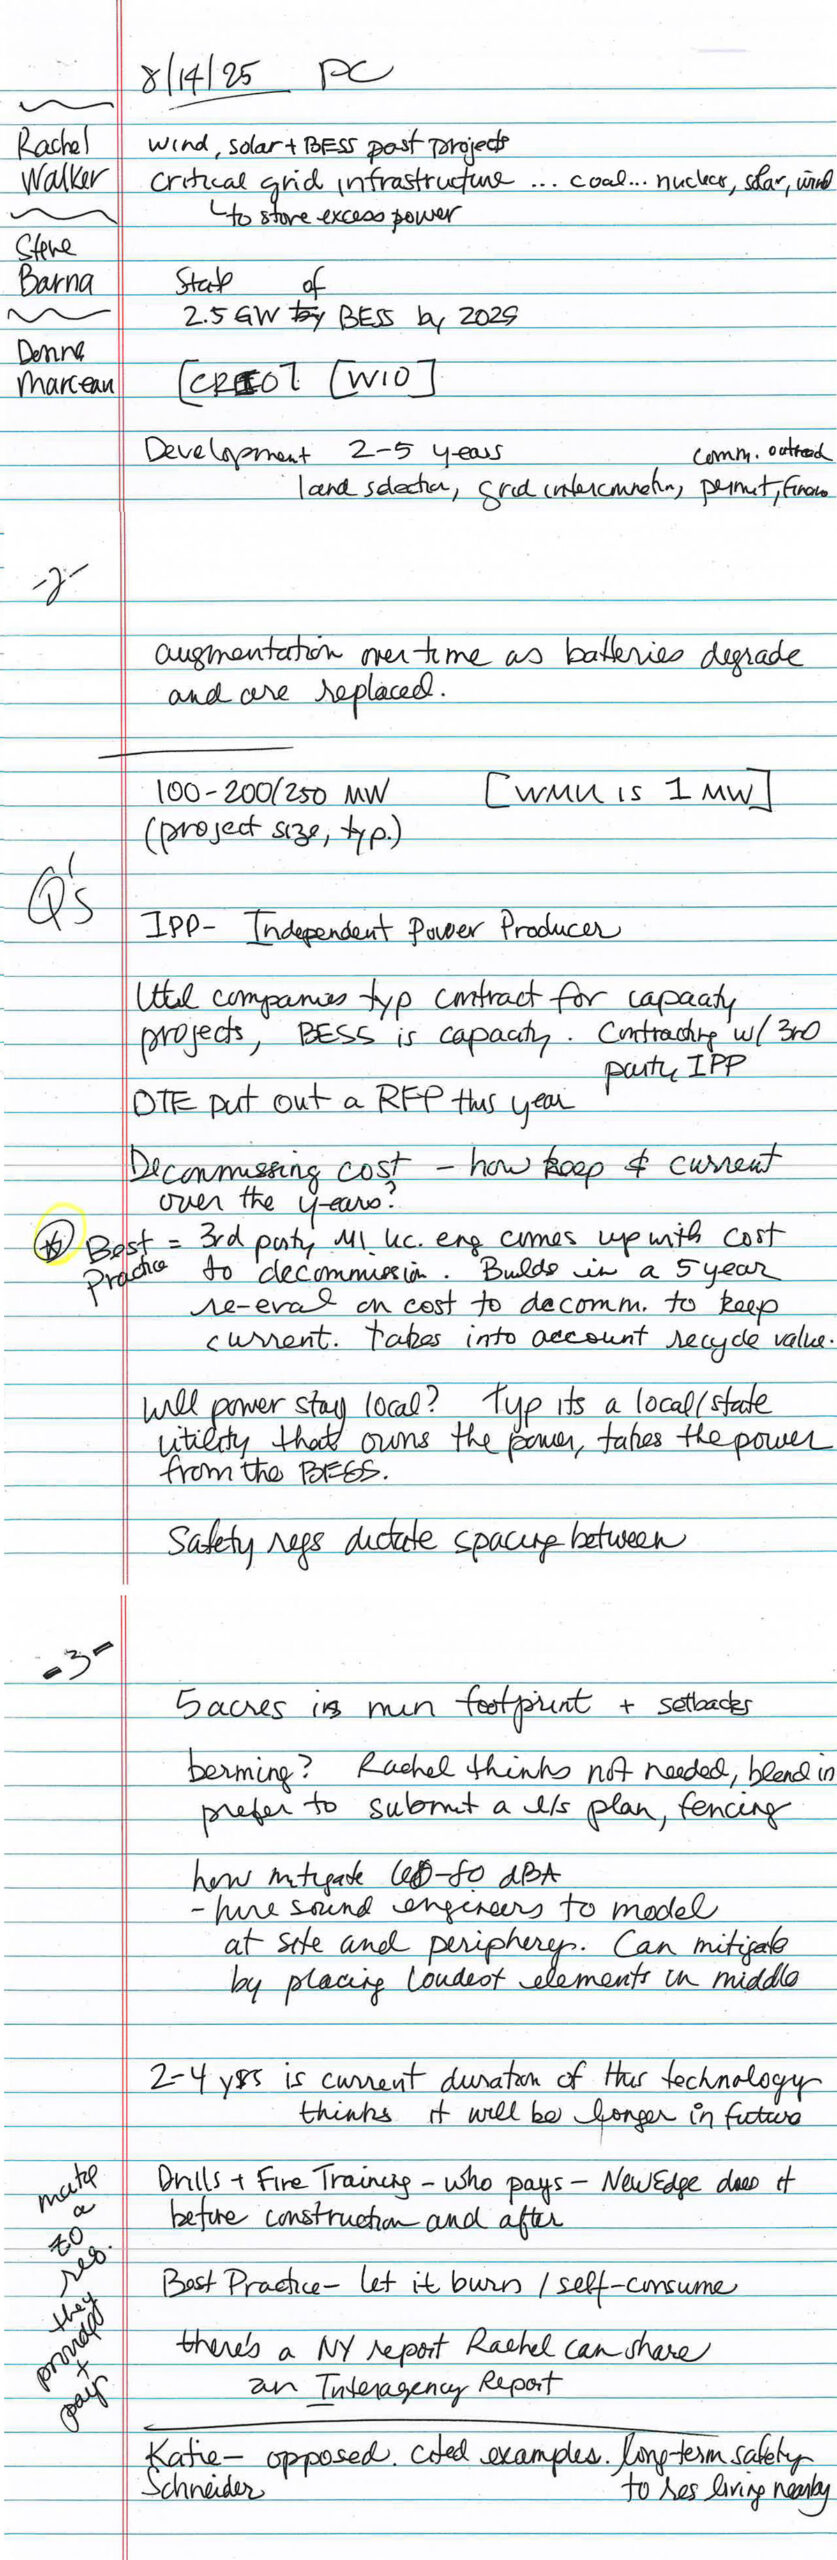 8/14/25 PC
Rachel
Walker
wind, solar + BESS past projects
critical grid infrastructure ... coal... nuclear, solar, wind
↳ to store excess power
Steve
Barna
State of
2.5 GW by BESS by 2029
Donna
Marceau
[WIO]
Development 2-5 years comm. outreach
land selection, grid interconnection, permit, financ
-2-
augmentation over time as batteries degrade
and are replaced.
100-200/250 MW [WMU is 1 MW]
(project size, typ.)
Q's
IPP- Independent Power Producer
Util companies typ contract for capacity
projects, BESS is capacity. Contracting w/ 3rd
party IPP
DTE put out a RFP this year
Decommissing cost - how keep $ current
over the years?
Best = 3rd party MI lic. eng comes up with cost
Practice to decommission. Builds in a 5 year
re-eval on cost to decomm. to keep
current. takes into account recycle value.
Will power stay local? Typ its a local/state
utility that owns the power, takes the power
from the BESS.
Safety regs dictate spacing between
-3-
5 acres is min footprint + setbacks
berming? Rachel thinks not needed, blend in
prefer to submit a l/s plan, fencing
how mitigate 60-80 dBA
- hire sound engineers to model
at site and periphery. Can mitigate
by placing loudest elements in middle
2-4 yrs is current duration of this technology
thinks it will be longer in future
Drills + Fire Training - who pays - NewEdge does it
before construction and after
make
a
ZO
reg.
they
provide
+
pay
Best Practice - let it burn / self-consume
there's a NY report Rachel can share
an Interagency Report
Katie - opposed. cited examples. long-term safety
Schneider to res living nearby